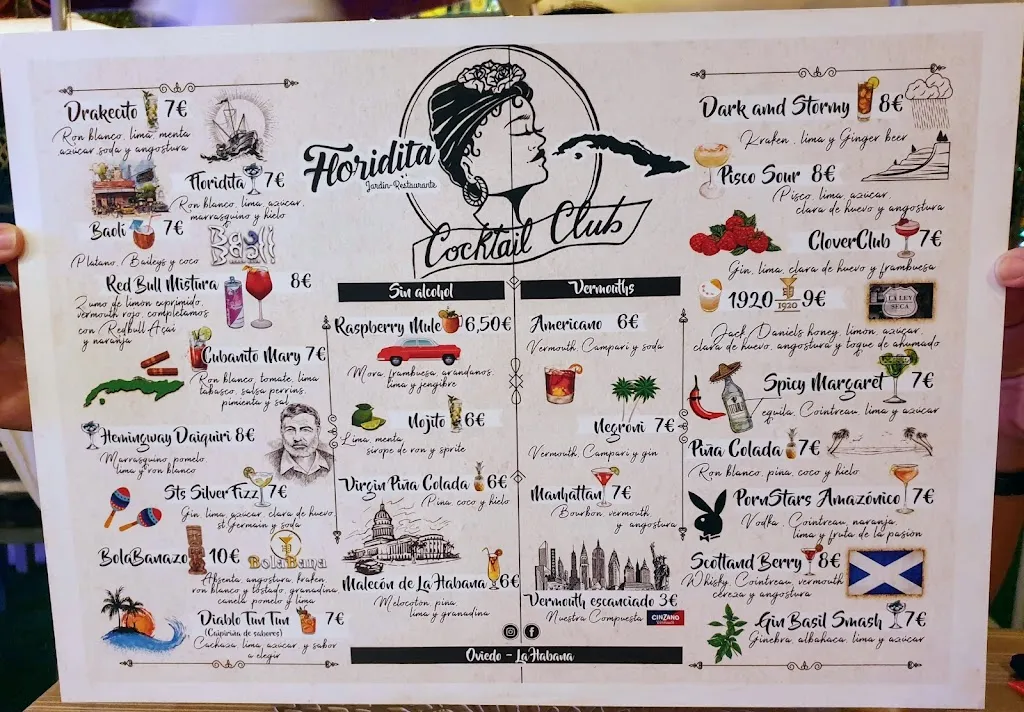 Floridita
Jardín-Restaurante
Cocktail Club
Drakecito 7€
Ron blanco, lima, menta
azúcar, soda y angostura
Floridita 7€
Ron blanco, lima, azúcar,
marrasquino y hielo
Baoli 7€
Platano, Baileys y coco
Red Bull Mistura 8€
Zumo de limón exprimido,
vermouth rojo, completamos
con Redbull Açai
y naranja
Cubanito Mary 7€
Ron blanco, tomate, lima
tabasco, salsa perrins,
pimienta y sal
Hemingway Daiquiri 8€
Marrasquino, pomelo,
lima y ron blanco
Sts Silver Fizz 7€
Gin, lima, azúcar, clara de huevo,
st Germain y soda
BolaBanazo 10€
BolaBana
Absenta, angostura, kraken
ron blanco y tostado, granadina,
canela, pomelo y lima
Diablo Tun Tun 7€
(Caipiriña de sabores)
Cachaza, lima, azúcar, y sabor
a elegir
Sin alcohol
Raspberry Mule 6,50€
Mora, frambuesa, arandanos,
lima y jengibre
Nojito 6€
Lima, menta,
sirope de ron y sprite
Virgin Piña Colada 6€
Piña, coco y hielo
Malecón de La Habana 6€
Melocotón, piña,
lima y granadina
Vermouths
Americano 6€
Vermouth, Campari y soda
Negroni 7€
Vermouth, Campari y gin
Manhattan 7€
Bourbon, vermouth,
y angostura
Vermouth escanciado 3€
Nuestra Compuesta
CINZANO
Oviedo - La Habana
Dark amd Stormy 8€
Kraken, lima y Ginger beer
Pisco Sour 8€
Pisco, lima, azúcar,
clara de huevo y angostura
CloverClub 7€
Gin, lima, clara de huevo y frambuesa
1920 9€
1920
LA LEY
SECA
Jack Daniels honey, limón, azúcar,
clara de huevo, angostura y toque de ahumado
Spicy Margaret 7€
Tequila, Cointreau, lima y azúcar
Piña Colada 7€
Ron blanco, piña, coco y hielo
PornStars Amazónico 7€
Vodka, Cointreau, naranja,
lima y fruta de la pasión
Scottland Berry 8€
Whisky, Cointreau, vermouth
cereza y angostura
Gin Basil Smash 7€
Ginebra, albahaca, lima y azúcar